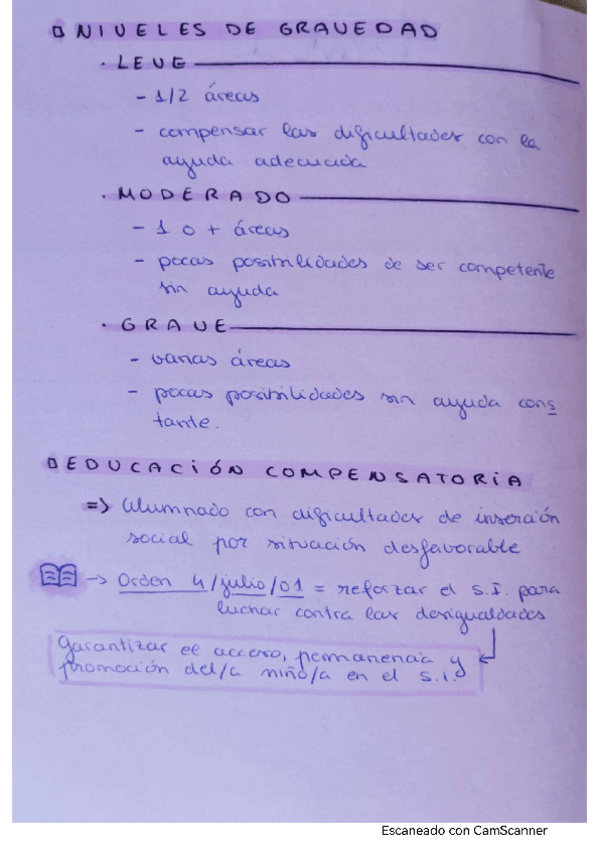 NIVELES DE GRAVEDAD
· LEVE
- 1/2 áreas
- compensar las dificultades con la
ayuda adecuada
· MODERADO
- 1 o + áreas
- pocas posibilidades de ser competente
sin ayuda
· GRAVE
- varias áreas
- pocas posibilidades sin ayuda cons
tante.
EDUCACIÓN COMPENSATORIA
=> Alumnado con dificultades de inserción
social por situación desfavorable
-> Orden 4/julio/01 = reforzar el S.I. para
luchar contra las desigualdades
Garantizar el acceso, permanencia y
promoción del/a niño/a en el S.I.
Escaneado con CamScanner